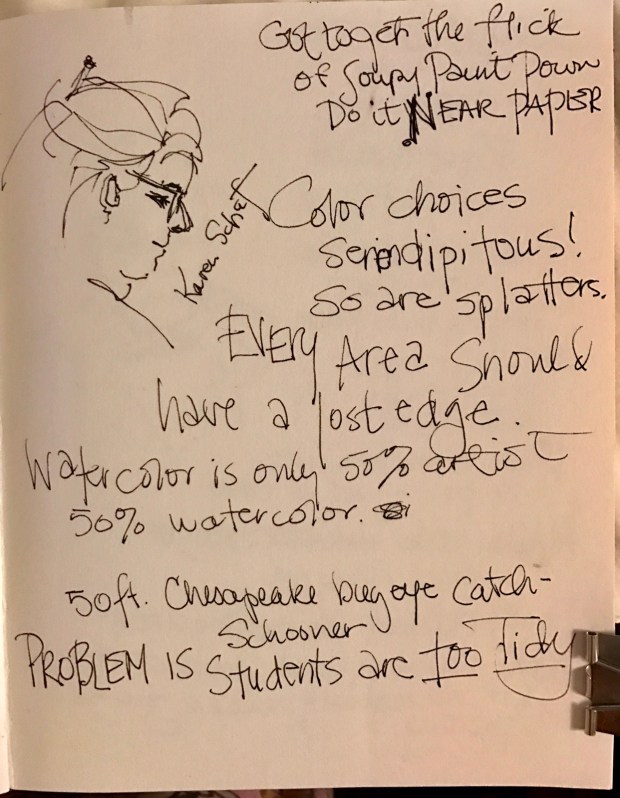 Got to get the flick
of Soupy Paint Down
Do it NEAR PAPER
Karen Schief
Color choices
Serendipitous!
So are splatters.
EVERY Area Should
have a lost edge.
Watercolor is only 50% artist
50% watercolor.
50ft. Chesapeake bugeye Catch-
Schooner
PROBLEM IS Students are too Tidy